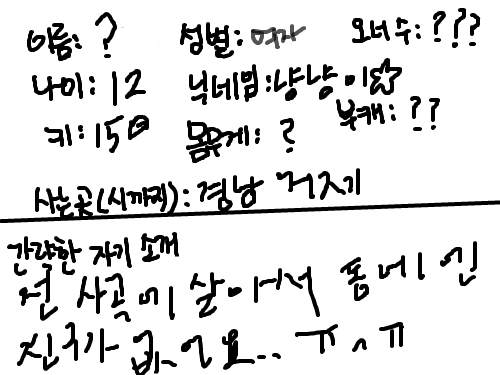 이름: ? 성별: 여자 오너수: ???
나이: 12 닉네임: 냥냥이☆
키: 150 몸무게: ? 부캐: ??
사는곳(시까지): 경남 거제
간략한 자기 소개
전 시골에 살아서 동네엔
친구가 없어요.. ㅠㅅㅠ